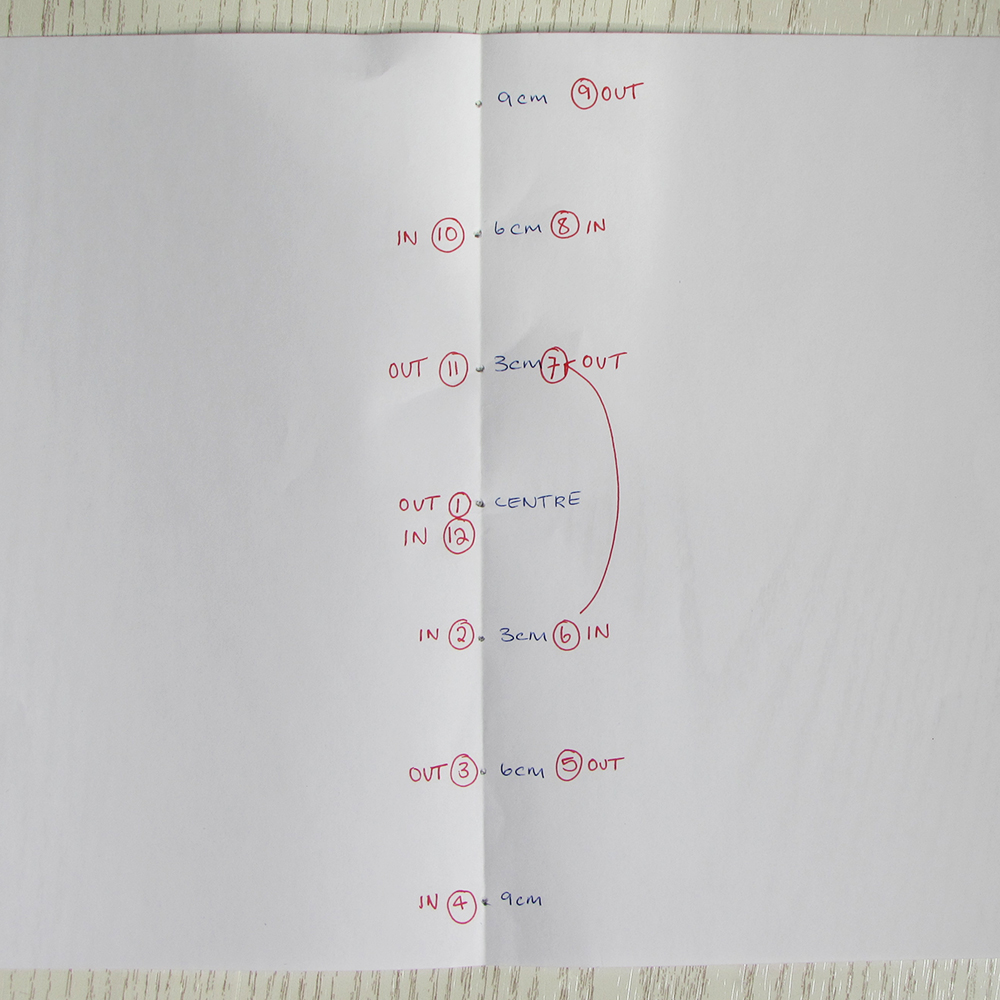 9cm 9 OUT
IN 10 6cm 8 IN
OUT 11 3cm 7 OUT
OUT 1 CENTRE
IN 12
IN 2 3cm 6 IN
OUT 3 6cm 5 OUT
IN 4 9cm